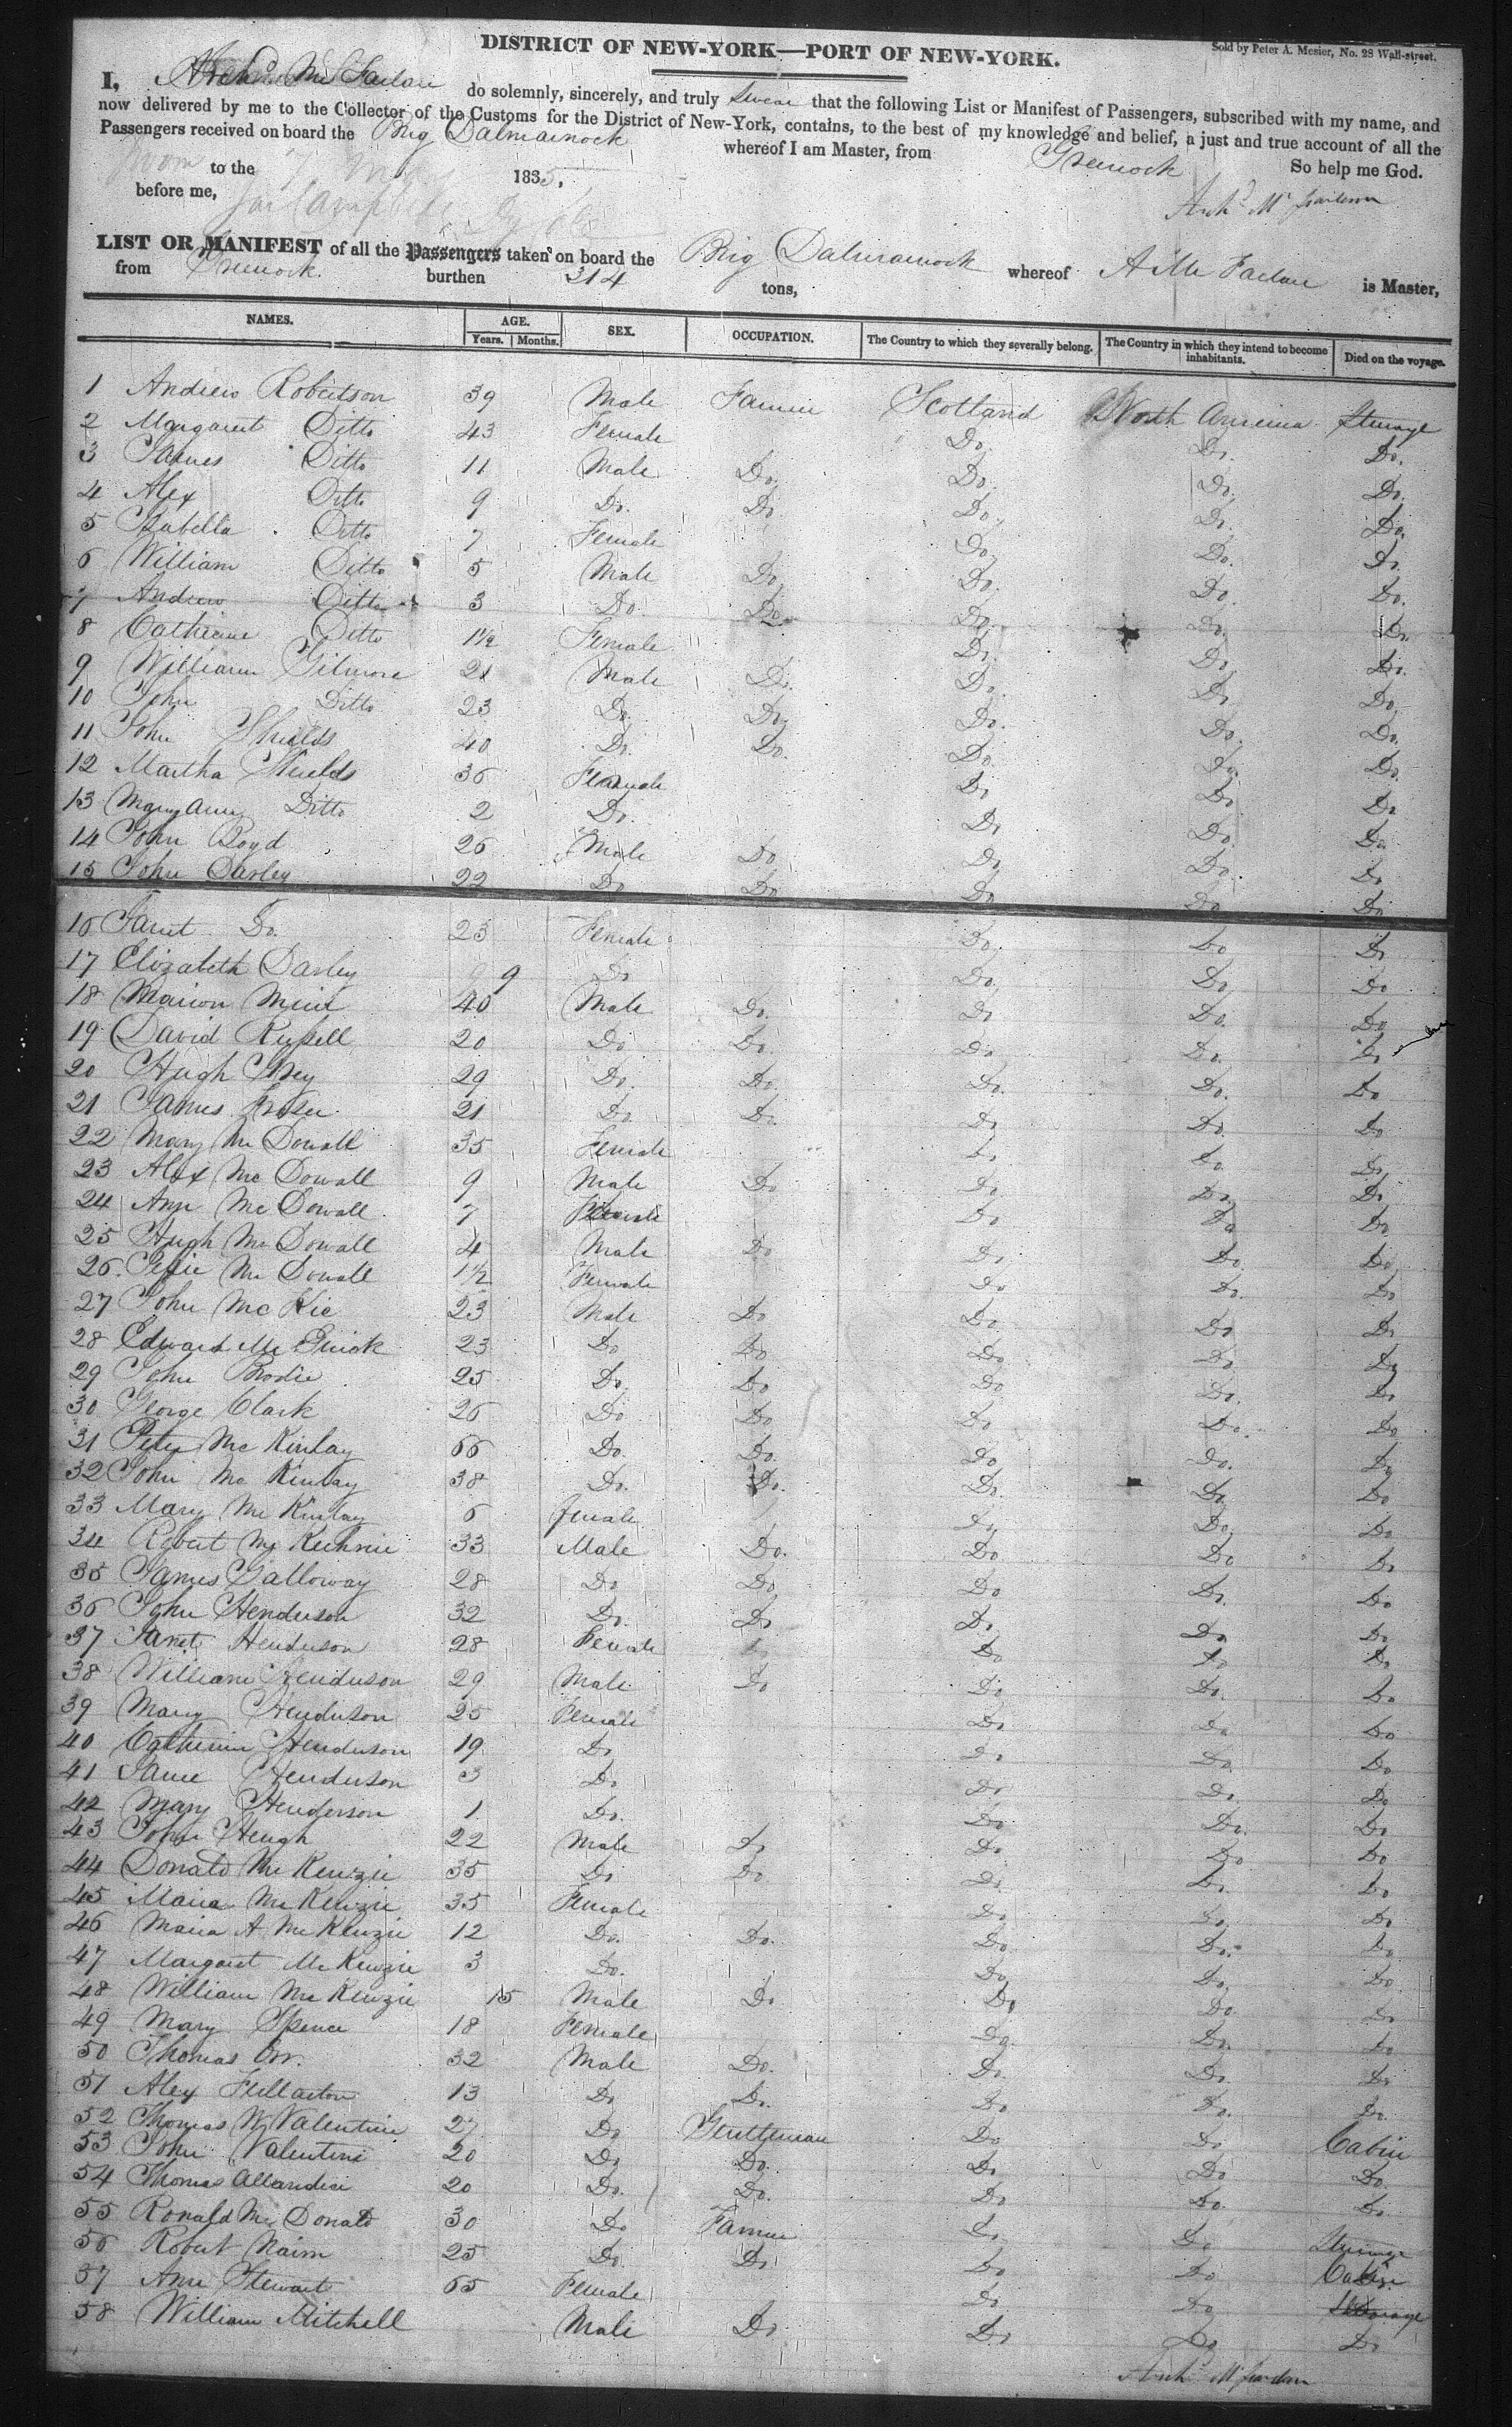 DISTRICT OF NEW-YORK—PORT OF NEW-YORK.
Sold by Peter A. Mesier, No. 28 Wall-street.
I, Archd Mc Farlane do solemnly, sincerely, and truly swear that the following List or Manifest of Passengers, subscribed with my name, and
now delivered by me to the Collector of the Customs for the District of New-York, contains, to the best of my knowledge and belief, a just and true account of all the
Passengers received on board the Brig Dalmarnock whereof I am Master, from Greenock
Sworn to the 7 1835. So help me God.
before me, Archd Mc Farlane
LIST OR MANIFEST of all the Passengers taken on board the Brig Dalmarnock whereof A Mc Farlane is Master,
from Greenock. burthen 314 tons,
NAMES. AGE. Years. Months. SEX. OCCUPATION. The Country to which they severally belong. The Country in which they intend to become inhabitants. Died on the voyage.
1 Andrew Robertson 39 Male Farmer Scotland North America Steerage
2 Margaret Ditto 43 Female Do. Do. Do.
3 James Ditto 11 Male Do. Do. Do. Do.
4 Alex Ditto 9 Do. Do. Do. Do. Do.
5 Isabella Ditto 7 Female Do. Do. Do.
6 William Ditto 5 Male Do. Do. Do. Do.
7 Andrew Ditto 3 Do. Do. Do. Do. Do.
8 Catherine Ditto 1½ Female Do. Do. Do.
9 William Gilmore 21 Male Do. Do. Do. Do.
10 John Ditto 23 Do. Do. Do. Do. Do.
11 John Shields 40 Do. Do. Do. Do. Do.
12 Martha Shields 36 Female Do Do Do
13 Mary Ann Ditto 2 Do. Do Do. Do.
14 John Boyd 26 Male Do Do Do. Do
15 John Darley 22 Do Do Do Do Do
16 Janet Do. 23 Female Do. Do Do
17 Elizabeth Darley 9 Do Do. Do. Do
18 Marion Muir 40 Male Do. Do Do. Do
19 David Russell 20 Do Do. Do Do. Do
20 Hugh Grey 29 Do. Do. Do. Do. Do
21 James Fraser 21 Do Do Do Do. Do
22 Mary Mc Dowall 35 Female Do Do. Do
23 Alex Mc Dowall 9 Male Do Do Do. Do
24 Ann Mc Dowall 7 Female Do Do Do
25 Hugh Mc Dowall 4 Male Do Do Do. Do
26 Jessie Mc Dowall 1½ Female Do Do. Do
27 John Mc Kie 23 Male Do Do. Do Do
28 Edward Mc 23 Do Do Do Do. Do
29 John Brodie 25 Do. Do Do Do. Do
30 George Clark 26 Do Do Do Do. Do
31 Peter Mc Kinlay 66 Do. Do. Do Do. Do
32 John Mc Kinlay 38 Do. Do. Do. Do Do
33 Mary Mc Kinlay 6 female Do Do. Do
34 Robert Mc Kechnie 33 Male Do. Do Do Do
35 James Galloway 28 Do Do Do Do. Do
36 John Henderson 32 Do. Do Do. Do Do
37 Janet Henderson 28 Female Do Do Do
38 William Henderson 29 Male Do Do Do. Do
39 Mary Henderson 25 Female Do Do Do
40 Catherine Henderson 19 Do Do Do. Do
41 Jane Henderson 3 Do Do Do. Do
42 Mary Henderson 1 Do. Do Do. Do
43 John Heugh 22 Male Do Do Do Do
44 Donald Mc Kenzie 35 Do Do Do. Do. Do
45 Maria Mc Kenzie 35 Female Do Do. Do
46 Maria A Mc Kenzie 12 Do. Do. Do Do. Do
47 Margaret Mc Kenzie 3 Do. Do Do. Do
48 William Mc Kenzie 15 Male Do Do Do. Do
49 Mary Spence 18 Female Do. Do. Do
50 Thomas Orr. 32 Male Do. Do. Do. Do
51 Alex Fullarton 13 Do Do. Do Do. Do.
52 Thomas W Valentine 27 Do Gentleman Do Do Cabin
53 John Valentine 20 Do Do. Do Do Do.
54 Thomas 20 Do. Do. Do Do. Do
55 Ronald Mc Donald 30 Do Farmer Do. Do Steerage
56 Robert Nairn 25 Do. Do Do Do Cabin
57 Ann Stewart 65 Female Do Do Steerage
58 William Mitchell Male Do Do Do Do
Archd Mc Farlane